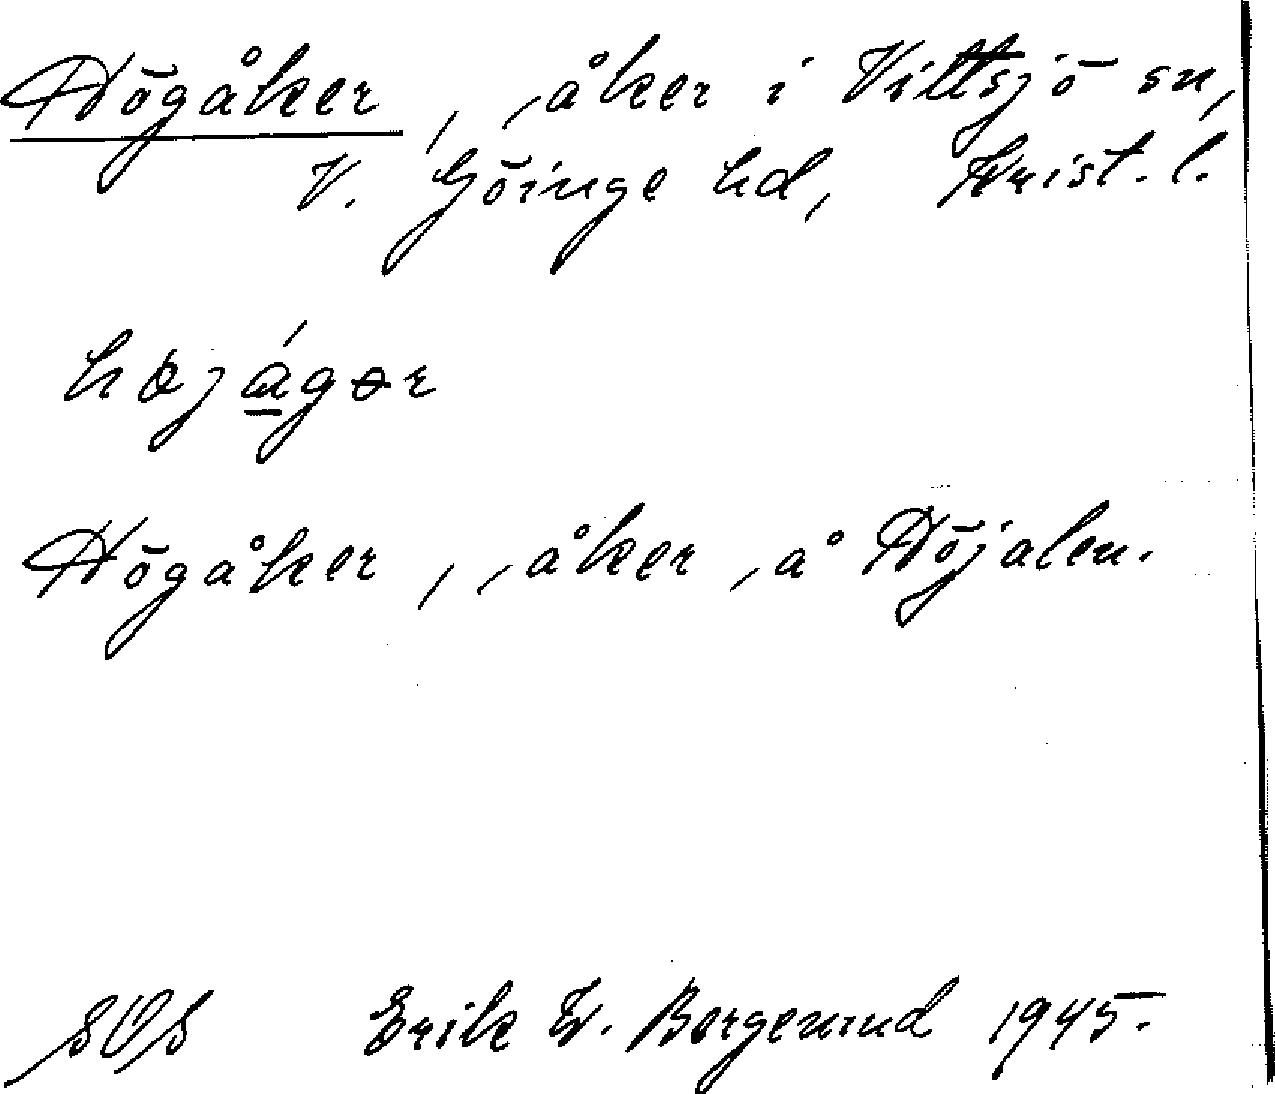 Högåker, åker i Vittsjö sn,
V. Göinge hd, Krist. l.
højágər
Högåker, åker å Höjalen.
SOS Erik W. Bergenrud 1945.